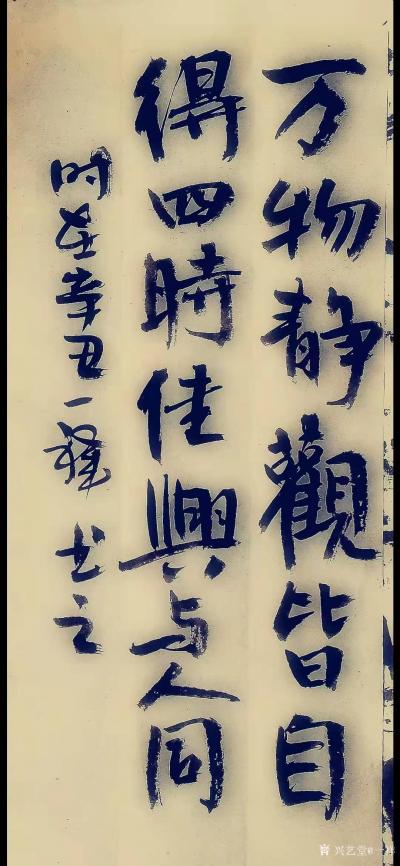 万物静觀皆自
得四時佳興与人同
时在辛丑一程书之
兴艺堂@一样